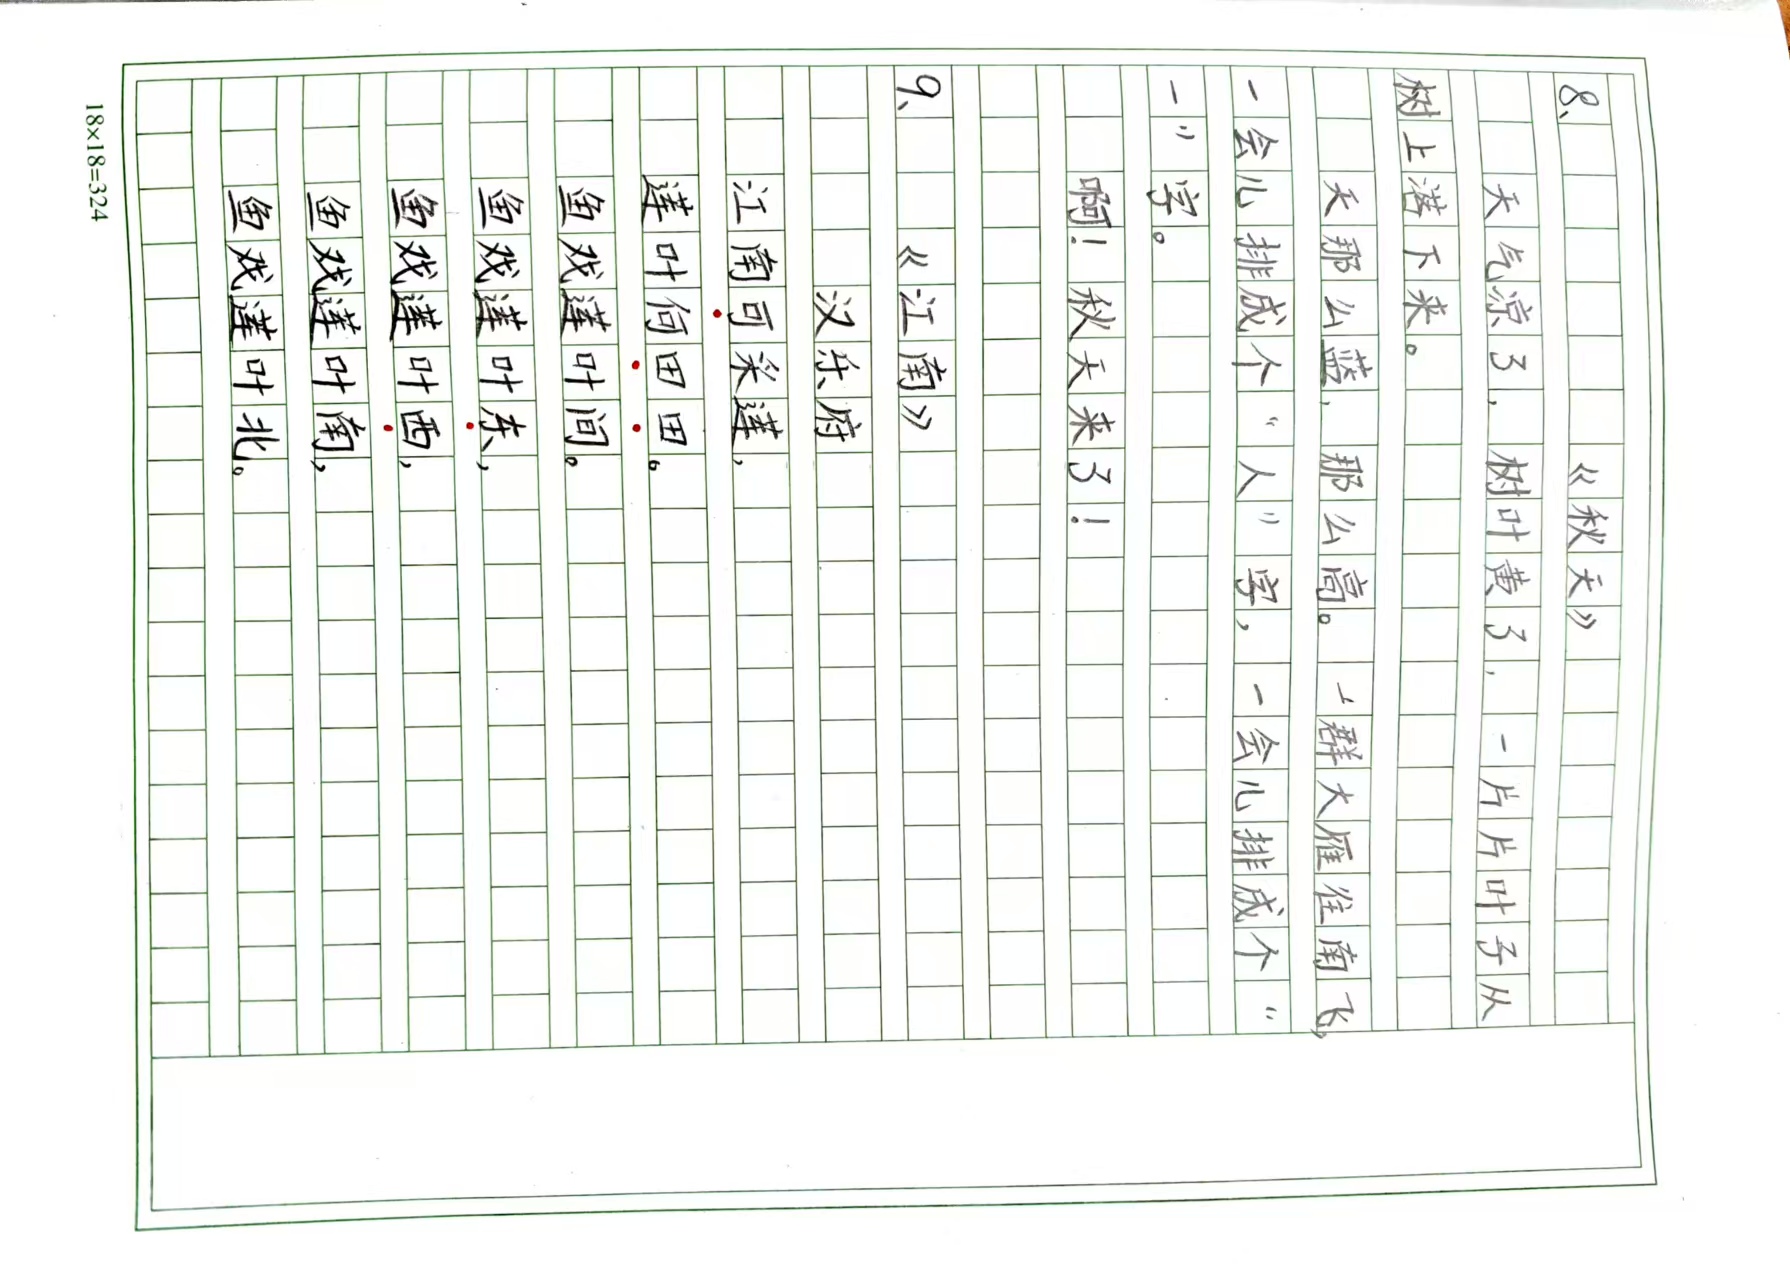 8、
《秋天》
天气凉了，树叶黄了，一片片叶子从
树上落下来。
天那么蓝，那么高。一群大雁往南飞，
一会儿排成个“人”字，一会儿排成个“
一”字。
啊！秋天来了！
9、《江南》
汉乐府
江南可采莲，
莲叶何田田。
鱼戏莲叶间。
鱼戏莲叶东，
鱼戏莲叶西，
鱼戏莲叶南，
鱼戏莲叶北。
18×18=324